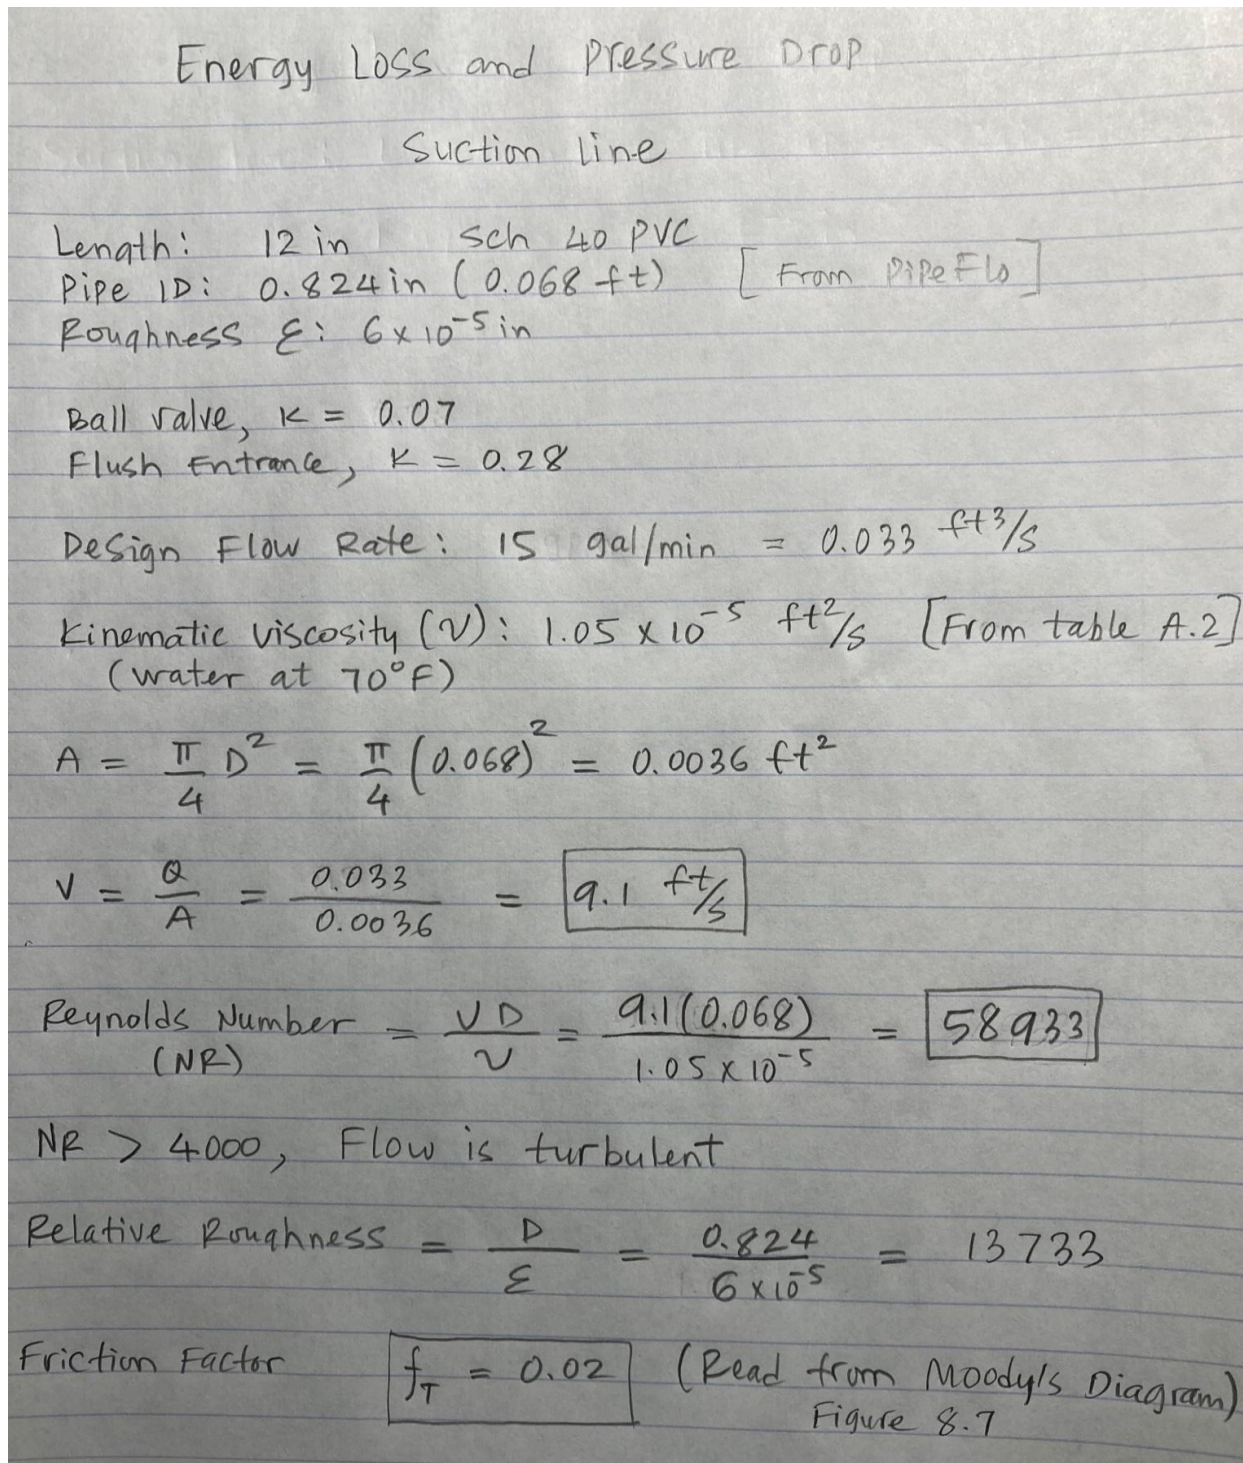 Energy Loss and Pressure Drop
Suction line
Length: 12 in sch 40 PVC
Pipe ID: 0.824 in (0.068 ft) [From PipeFlo]
Roughness ε: 6 x 10⁻⁵ in
Ball valve, K = 0.07
Flush Entrance, K = 0.28
Design Flow Rate: 15 gal/min = 0.033 ft³/s
Kinematic viscosity (ν): 1.05 x 10⁻⁵ ft²/s [From table A.2]
(water at 70°F)
A = π/4 D² = π/4 (0.068)² = 0.0036 ft²
V = Q/A = 0.033/0.0036 = 9.1 ft/s
Reynolds Number (NR) = VD/ν = 9.1(0.068)/1.05 x 10⁻⁵ = 58933
NR > 4000, Flow is turbulent
Relative Roughness = D/ε = 0.824/6 x 10⁻⁵ = 13733
Friction Factor f_T = 0.02 (Read from Moody's Diagram)
Figure 8.7